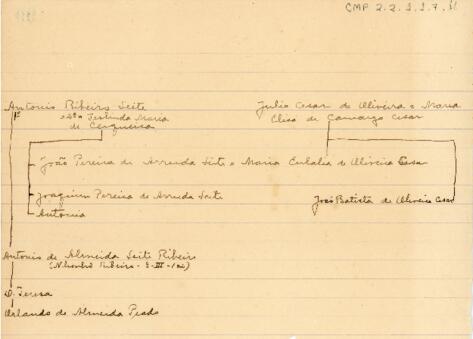 CMP 2.2.1.1.7.
Antonio Ribeiro Leite
Julio Cesar de Oliveira e Maria
1º
e 2º Teslinda Maria
Elisa de Camargo Cesar
de Cerqueira
João Pereira de Arruda Leite e Maria Eulalia de Oliveira Cesar
Joaquim Pereira de Arruda Leite
João Batista de Oliveira Cesar
Antonia
Antonio de Almeida Leite Ribeiro
Ribeiro
D. Teresa
Orlando de Almeida Prado